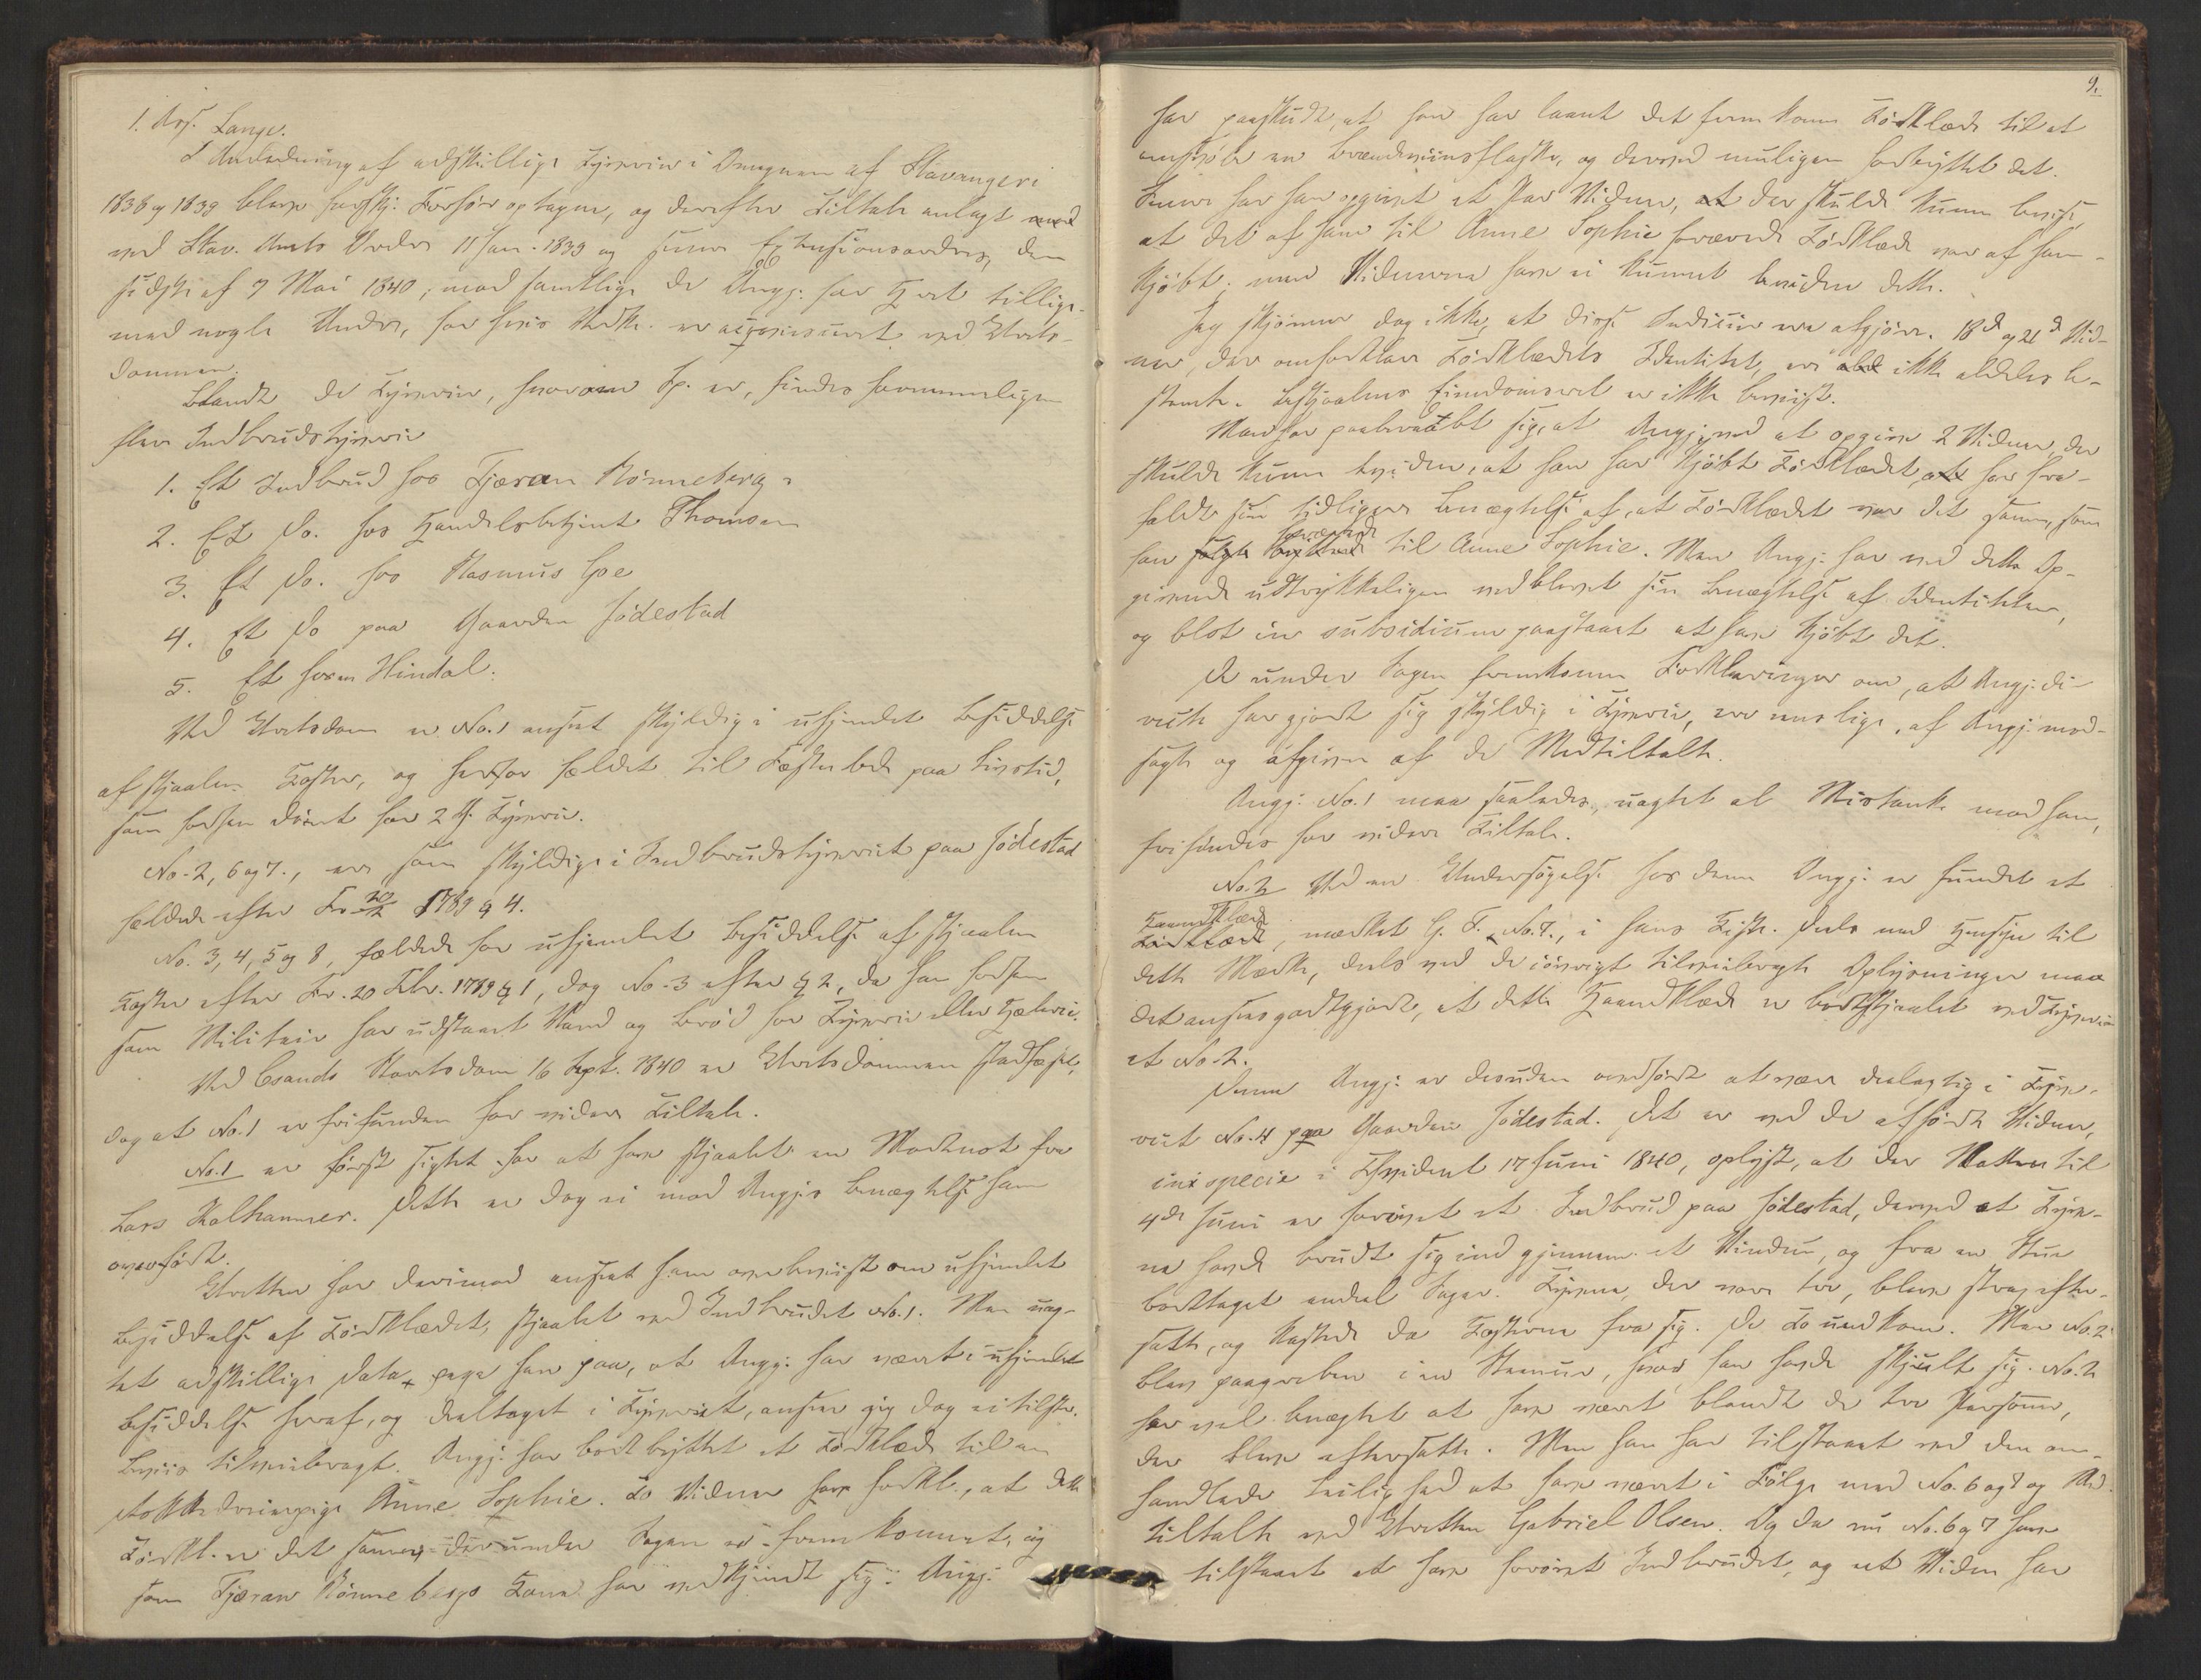 1. Ass. Lange.
I Anledning af adskillige Tyverier i Omegnen af Stavanger i
1838 og 1839 bleve forskj: Forhør optagne, og derefter Tiltale anlagt
ved Stav. Amts Ordre 11 Jan. 1839 og senere Extensionsordres, den
sidste af 7 Mai 1840; mod samtlige de Angj: har Hvert tillige-
med nogle Andre, for hvis Vedk. er acqviesceret ved Under-
dommen.
Blandt de Tyverier, hvorom Sp. er, findes fornemmeligen
flere Indbrudstyverier
1. Et Indbrud hos Tjæran Rönneberg.
2. Et Do. hos Handelsbetjent Thomsen
3. Et Do. hos Rasmus Goe
4. Et Do paa Gaarden Jödestad
5. Et hos en Hindal.
Ved Underdom er No. 1 anseet skyldig i uhjemlet Besiddelse
af stjaalne Koster, og derfor fældet til Fæstn. Arb. paa Livstid,
som forhen dömt for 2 G. Tyverie.
No. 2, 6 og 7., ere som skyldige i Indbrudstyveriet paa Jödestad
fældede efter Fr. 20/2 1789 § 4.
No. 3, 4, 5 og 8, fældede for uhjemlet Besiddelse af stjaalne
Koster efter Fr. 20 Febr. 1789 § 1, dog No. 3 efter § 2, da han forhen
som Militair har udstaaet Vand og Bröd for Tyverie eller Hæleri.
Ved Csands Stiftsdom 16 Sept. 1840 er Underdommen stadfæstet,
dog at No. 1 er frifunden for videre Tiltale.
No. 1 er først sigtet for at have stjaalet en Vadnot fra
Lars Kolhammer. Dette er dog ei mod Angj:s Benægtelse ham
overfört.
Underretten har derimod anseet ham overbeviist om uhjemlet
Besiddelse af Törklædet, stjaalet ved Indbrudet No. 1. Men uag-
tet adskillige Data pege hen paa, at Angj: har været i uhjemlet
Besiddelse heraf, og deeltaget i Tyveriet, anseer jeg dog ei tilstr.
Beviis tilveiebragt. Angj: har bortbyttet et Törklæde til en
Anne Sophie. To Vidner have forkl., at dette
Törkl. er det samme, der under Sagen er fremkommet, og
som Tjæran Rönnebergs Kone har vedkjendt sig. Angj:
9.
har paaskudt, at han har laant det fremkomne Törklæde til at
omsvöbe en Brændeviinsflaske, og derved muligen forbyttet det.
Senere har han opgivet et Par Vidner, der skulde kunne bevise,
at det af ham til Anne Sophie forærede Törklæde var af ham
kjöbt; men Vidnerne have ei kunnet bevidne dette.
Jeg skjönner dog ikke, at disse Indicier ere afgjör. 18d og 21d Vid-
ner, der omforklare Törklædets Identitet, ere ikke aldeles be-
stemte. Bestjaalnes Eiendomsret er ikke beviist.
Man har paaberaabt sig, at Angj: ved at opgive 2 Vidner, der
skulde kunne bevidne, at han har kjöbt Törklædet, har fra-
faldt sin tidligere Benægtelse af, at Törklædet var det samme, som
han forærede til Anne Sophie. Men Angj: har ved dette Op-
givende udtrykkeligen vedblevet sin Benægtelse af Identiteten,
og blot in subsidium paastaaet at have kjöbt det.
De under Sagen fremkomne Forklaringer om, at Angj: di-
recte har gjort sig skyldig i Tyverie, ere ensidige, af Angj: mod-
sagte og afgivne af de Medtiltalte.
Angj: No. 1 maa saaledes, uagtet al Mistanke mod ham,
frifindes for videre Tiltale.
No. 2 Ved en Undersögelse hos denne Angj: er fundet et
Haandklæde, mærket G. T. No. 7., i hans Kiste. Deels med Hensyn til
dette Mærke, deels ved de iövrigt tilveiebragte Oplysninger maa
det ansees godtgjort, at dette Haandklæde er bortstjaalet ved Tyveri-
et No. 2.
Denne Angj: er desuden overfört at være deelagtig i Tyve-
riet No. 4 paa Gaarden Jödestad. Det er ved de afhörte Vidner,
in specie i Thvidnet 17 Juni 1840, oplyst, at der Natten til
4de Juni er forövet et Indbrud paa Jödestad, derved at Tyve-
ne havde brudt sig ind gjennem et Vindue, og fra en Stue
borttaget endeel Sager. Tyvene, der vare tre, bleve strax efter-
satte, og kastede da Kosterne fra sig. De To undkom. Men No. 2
blev paagreben i en Steenuur, hvor han havde skjult sig. No. 2
har vel benægtet at have været blandt de tre Personer,
der bleve eftersatte. Men han har tilstaaet ved den om-
handlede Leilighed at have været i Fölge med No. 6 og 7 og Med-
tiltalte ved Underretten Gabriel Olsen. Og da nu No. 6 og 7 have
tilstaaet at have forövet Indbrudet, og et Vidne har